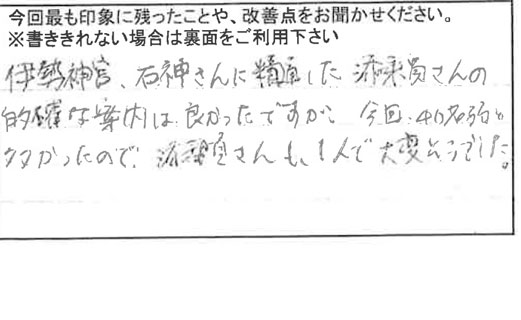 今回最も印象に残ったことや、改善点をお聞かせください。
※書ききれない場合は裏面をご利用下さい
伊勢神宮、石神さんに精通した添乗員さんの
的確な案内は良かったですが、今回、40名弱と
多かったので、添乗員さんも、1人で大変そうでした。